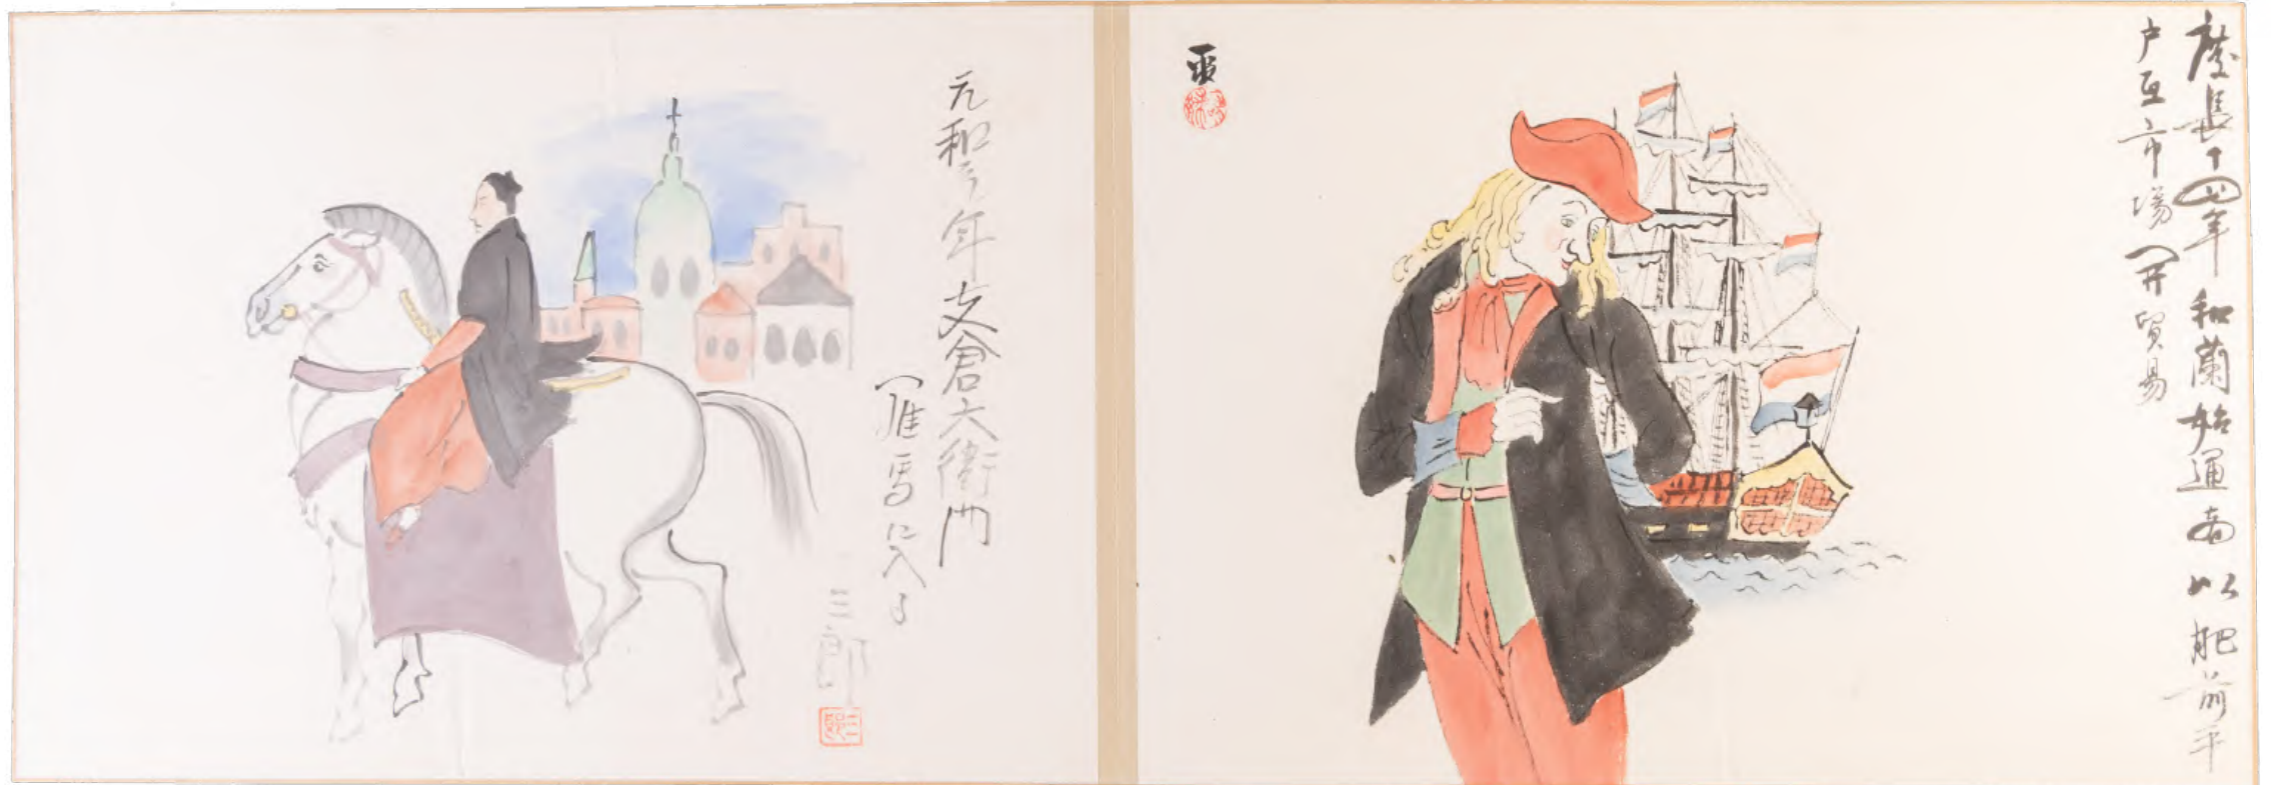 慶長十四年和蘭始通商以肥前平
戸互市場開貿易
元和元年支倉六衛門
羅馬に入る
三郎